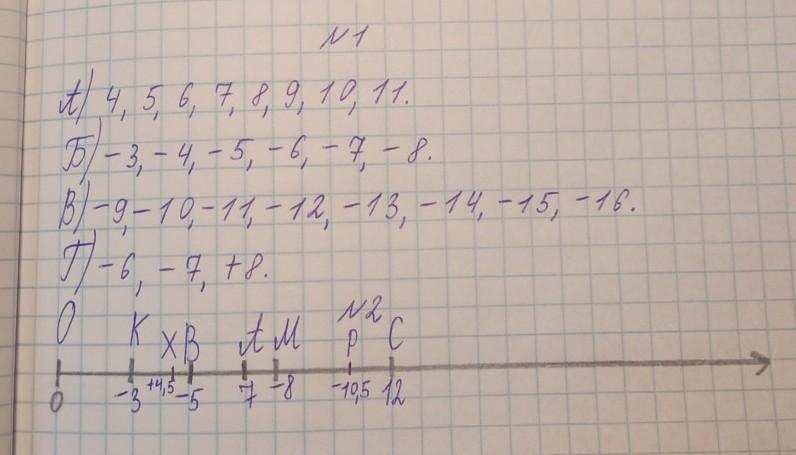 №1
А) 4, 5, 6, 7, 8, 9, 10, 11.
Б) -3, -4, -5, -6, -7, -8.
В) -9, -10, -11, -12, -13, -14, -15, -16.
Г) -6, -7, +8.
№2
O K X B A M P C
0 -3 +4,5 -5 7 -8 -10,5 12